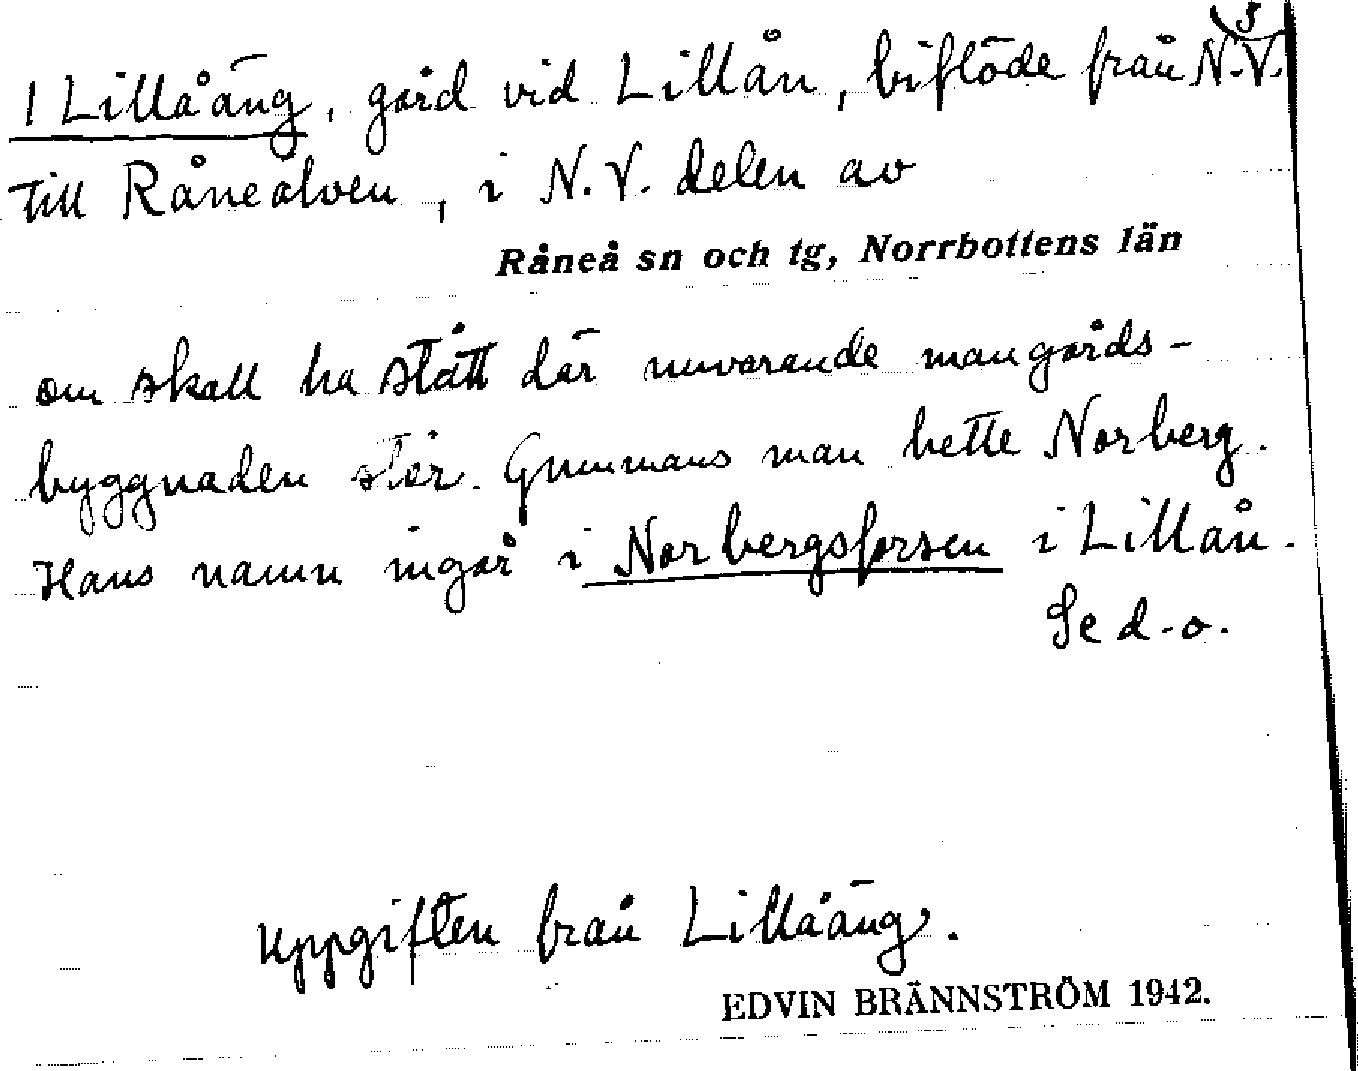 3
1 Lillåäng, gård vid Lillån, biflöde från N.V.
till Råneälven, i N.V. delen av
Råneå sn och tg, Norrbottens län
om skall ha stått där nuvarande mangårds-
byggnaden står. Gummans man hette Norberg.
Hans namn ingår i Norbergsforsen i Lillån.
Se d.o.
Uppgiften från Lillåäng.
EDVIN BRÄNNSTRÖM 1942.